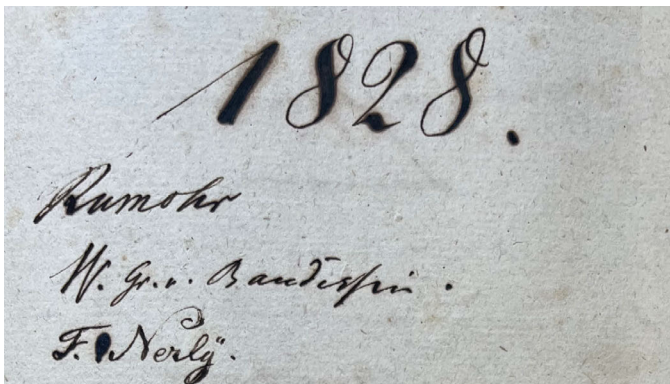 1828.
Rumohr
W. Gr. v. Baudissin.
F. Nerlÿ.